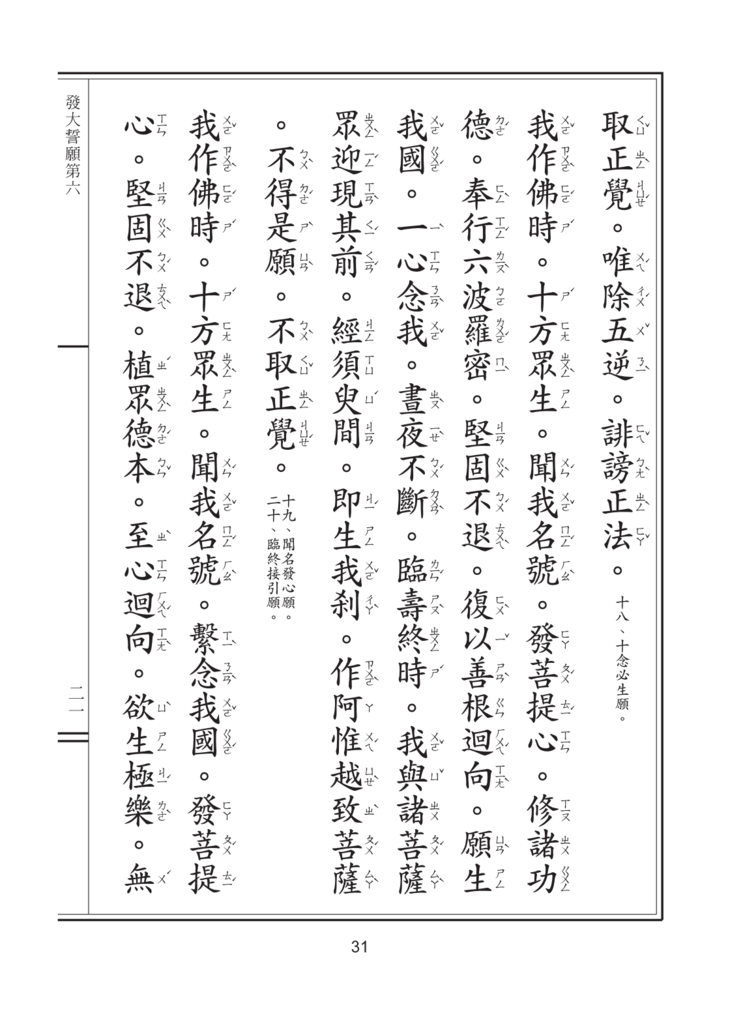 取正覺。唯除五逆。誹謗正法。十八、十念必生願。
我作佛時。十方眾生。聞我名號。發菩提心。修諸功
德。奉行六波羅密。堅固不退。復以善根迴向。願生
我國。一心念我。晝夜不斷。臨壽終時。我與諸菩薩
眾迎現其前。經須臾間。即生我剎。作阿惟越致菩薩
。不得是願。不取正覺。十九、聞名發心願。
二十、臨終接引願。
我作佛時。十方眾生。聞我名號。繫念我國。發菩提
心。堅固不退。植眾德本。至心迴向。欲生極樂。無
發大誓願第六
二一
31